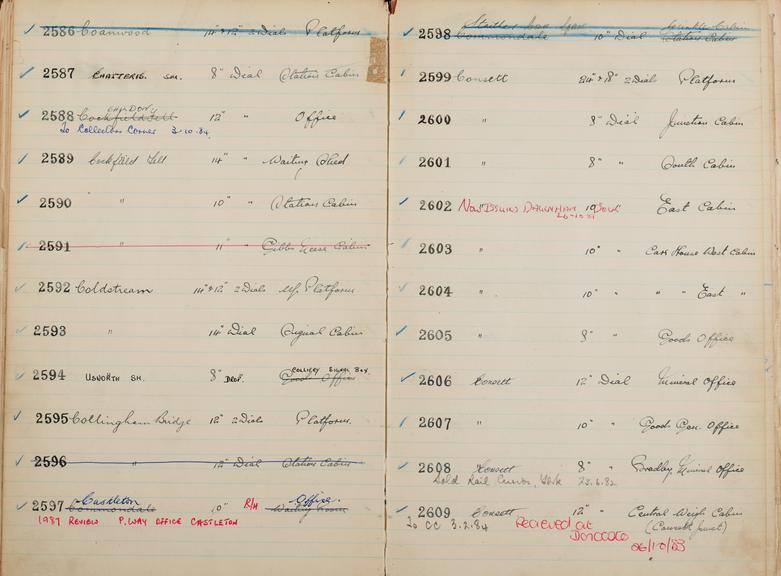 2586 Coanwood 14" & 12" 2 Dials Platform
2587 CHATTERIS. SM. 8" Dial Station Cabin
EHILDON
2588 Cockfield Fell 12" " Office
To Collectors Corner 3-10-84
2589 Cockfield Fell 14" " Waiting Shed
2590 " 10" " Station Cabin
2591 " 11" " Gibbs Neese Cabin
2592 Coldstream 14" & 12" 2 Dials Up Platform
2593 " 14" Dial Signal Cabin
COLLIERY SIGNAL BOX
2594 USWORTH SM. 8" DROP. Goods Office
2595 Collingham Bridge 12" 2 Dials Platform.
2596 " 12" Dial Station Cabin
Castleton Office.
2597 Commondale 10" R/H Waiting Room
1987 REVIEW P.WAY OFFICE CASTLETON
2598 Commondale 10" Dial Station Cabin
2599 Consett 24" & 18" 2 Dials Platform
2600 " 8" Dial Junction Cabin
2601 " 8" " South Cabin
2602 " 10" East Cabin
2603 " 10" " Carr House West Cabin
2604 " 10" " " " East "
2605 " 8" " Goods Office
2606 Consett 12" Dial Mineral Office
2607 " 10" " Goods Gen. Office
2608 Consett 8" " Bradley Mineral Office
Sold Rail Curios York 23.6.82
2609 Consett 12" " Central Weigh Cabin
To CC 3.2.84 Recieved at (Consett Junct)
06/10/83